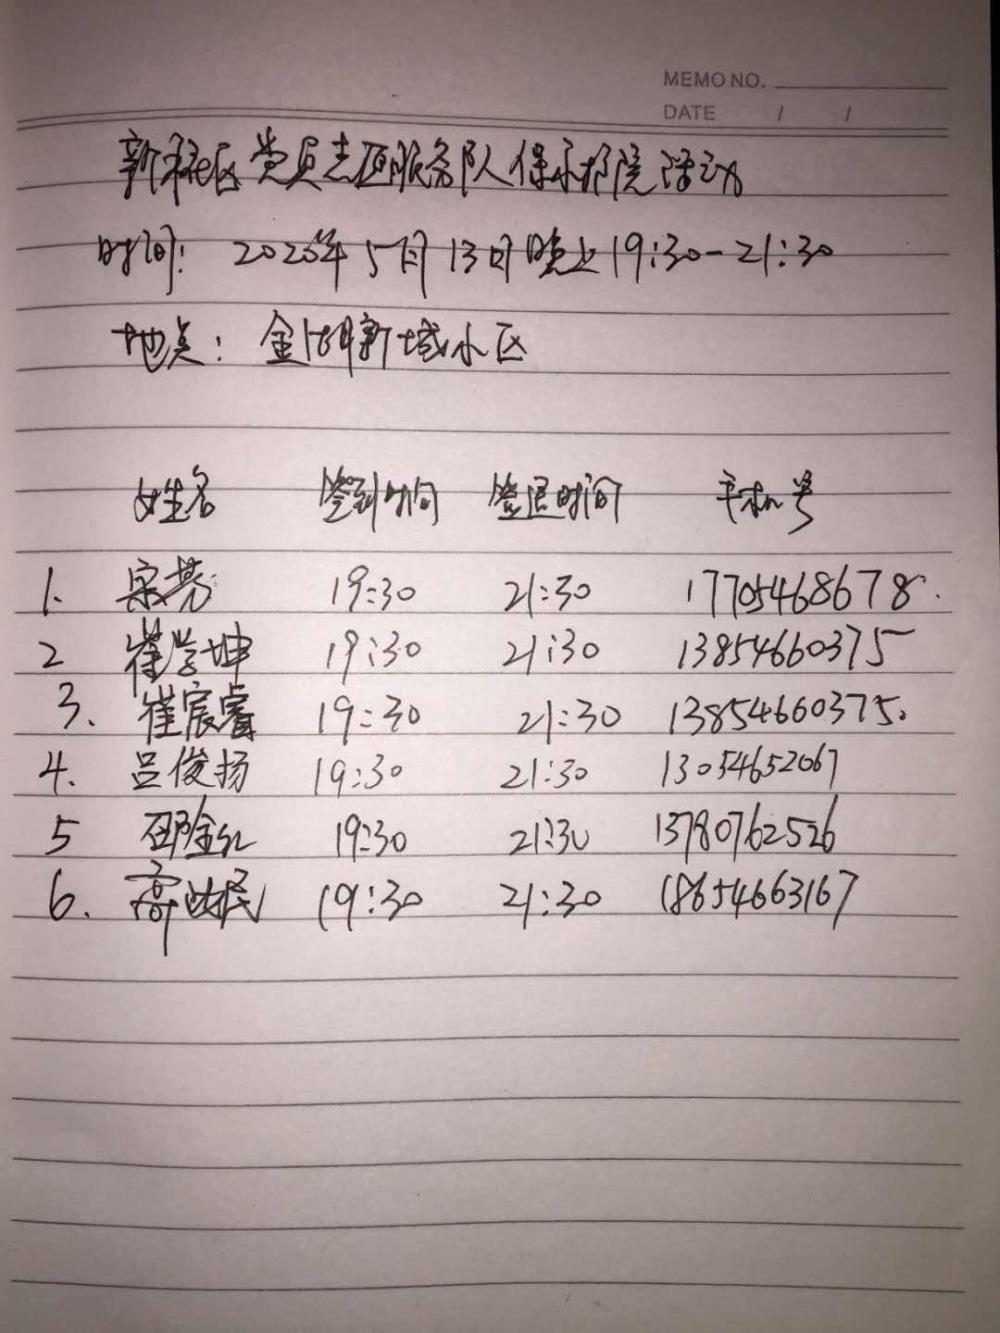 MEMO NO.
DATE / /
新社区党员志愿服务队保永护院活动
时间: 2020年5月13日晚上19:30-21:30
地点: 金湖新城小区
姓名 签到时间 签退时间 手机号
1. 宋芳 19:30 21:30 17705468678.
2 崔学坤 19:30 21:30 13854660375
3. 崔宸睿 19:30 21:30 13854660375.
4. 吕俊扬 19:30 21:30 13054652067
5 邵金红 19:30 21:30 13780762526
6. 高民 19:30 21:30 18654663167